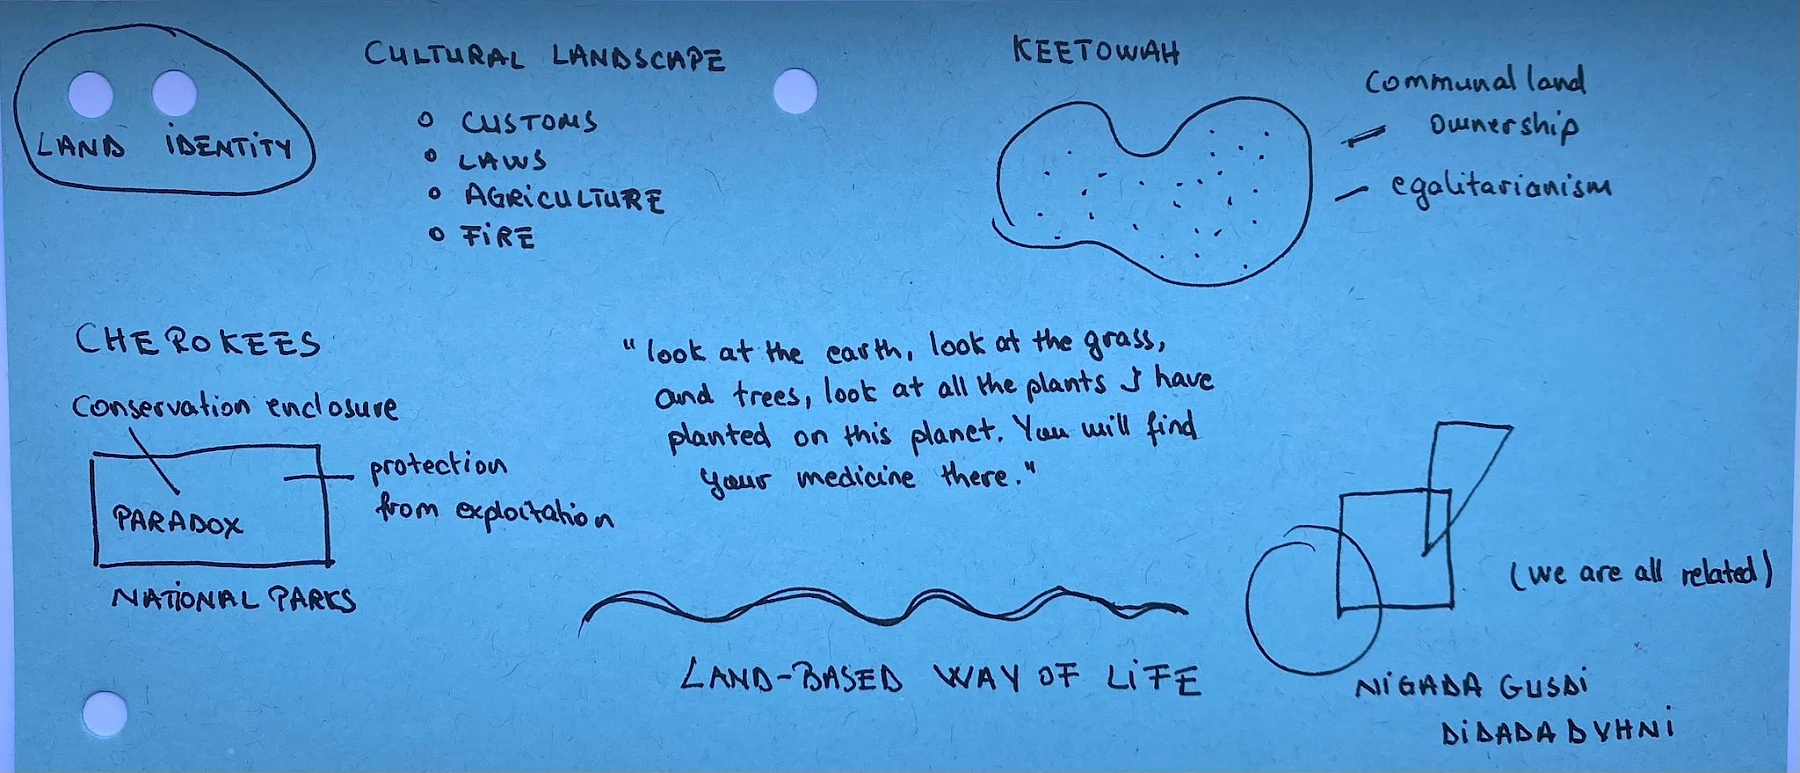 LAND IDENTITY
CULTURAL LANDSCAPE
CUSTOMS
LAWS
AGRICULTURE
FIRE
KEETOWAH
Communal land
ownership
egalitarianism
CHEROKEES
Conservation enclosure
PARADOX
protection
from exploitation
NATIONAL PARKS
"look at the earth, look at the grass,
and trees, look at all the plants I have
planted on this planet. You will find
your medicine there."
LAND-BASED WAY OF LIFE
(we are all related)
NIGADA GUSDI
DIDADADVHNI